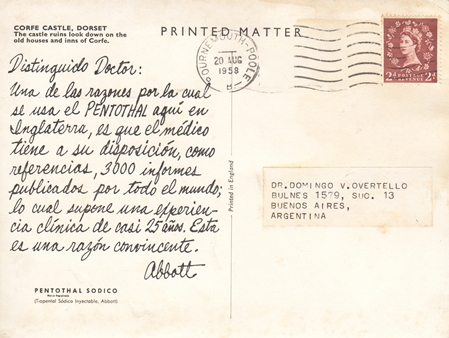 CORFE CASTLE, DORSET
The castle ruins look down on the
old houses and inns of Corfe.
PRINTED MATTER
BOURNEMOUTH-POOLE
20 AUG
1958
POSTAGE REVENUE
2d 2d
Distinguido Doctor:
Una de las razones por la cual
se usa el PENTOTHAL aquí en
Inglaterra, es que el médico
tiene a su disposición, como
referencias, 3000 informes
publicados por todo el mundo;
lo cual supone una experien-
cia clínica de casi 25 años. Esta
es una razón convincente.
Abbott
PENTOTHAL SODICO
Marca Registrada
(Tiopental Sódico Inyectable, Abbott)
Printed in England
DR. DOMINGO V. OVERTELLO
BULNES 15?9, SUC. 13
BUENOS AIRES,
ARGENTINA